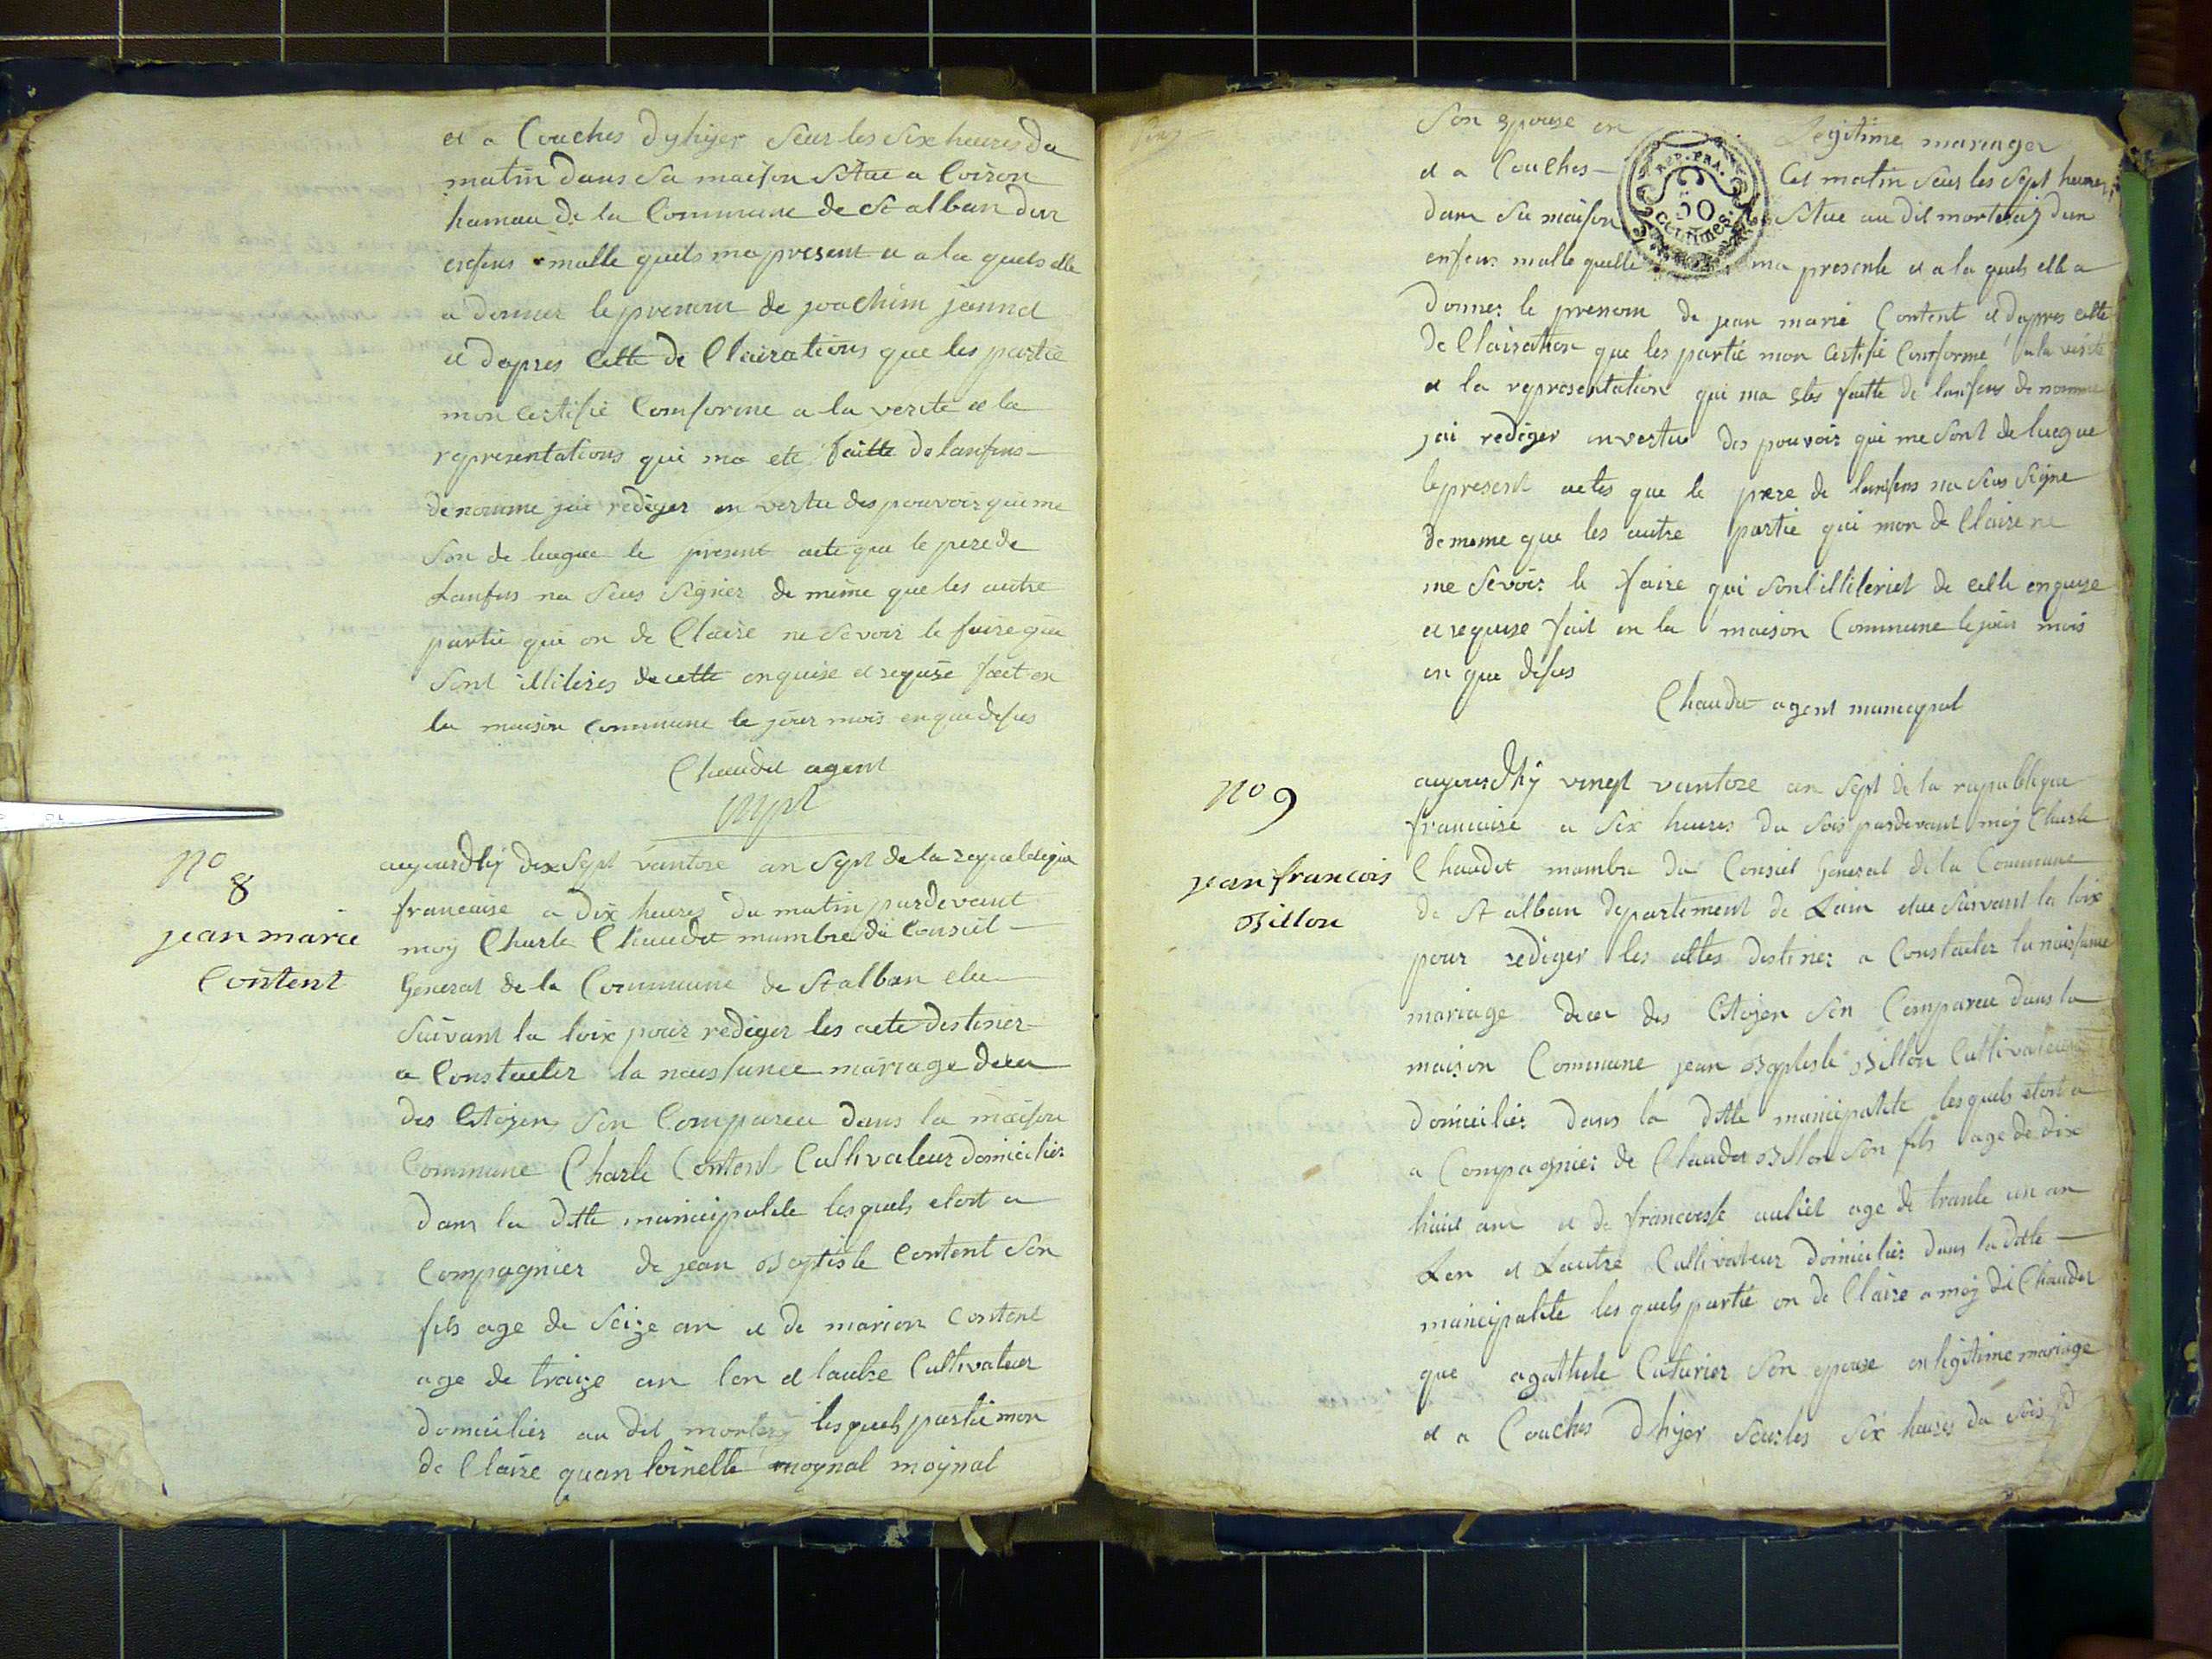 et a Couches dyhiyer Seur les Six heures du
matin dans Sa maison Situe a Coiron
hamau de la Commune de St alban dun
enfans malle quels ma present et a la quels elle
a donner le prenom de joachim jannet
et dapres Cette de Clairations que les partie
mon certifie Comforme a la verite et la
representations qui ma ete faitte de lanfans
denomme jai rediger en vertu des pouvoir qui me
Son de luegue le present acte que le pere de
Lanfans na Seus Signer de même que les autre
partie qui on de Claire ne Savoir le faire que
Sont illiteres de cette enquise et requise fait en
la maison commune le jour mois en que desus
Chaudet agent
mpl
No
8
jean marie
Content
aujourdhy dix Sept vantose an Sept de la republique
francaise a dix heures du matin pardevant
moy Charle Chaudet mambre du Consiel
General de la Commune de St alban elue
Suivant la loix pour rediger les acte destiner
a Constaeter la naissance mariage decu
des Citoyen Son Compareu dans la maison
Commune Charle Content Cultivateur domicilier
dans la ditte municipalite les quels etoit a
Compagnier de jean Baptiste Content Son
fils age de Seize an et de marion Content
age de traize an lon et lautre Cultivateur
domicilier au dit mortery les quels partie mon
de Claire quantoinette moynal moynal
Son epouse en Legitime mariager
et a Couches Cet matin Seur les Sept heures
REP. FRA.
50
Centimes.
dans Sa maison Situe au dit morteraiz dun
enfens malle quelle ma presente et a la quels elle a
donner le prenom de jean marie Content et dapres cette
de Clairation que les partie mon Certifie Comforme a la verite
et la representation qui ma etes faitte de lanfens de nomme
jai rediger en vertue des pouvoir qui me Sont de luegue
le present actes que le pere de lanfens na Seus Signe
de meme que les autre partie qui mon de Claire ne
me Sevoir le faire qui Sont illiteriet de cette enquise
et requise fait en la maison Commune le jour mois
en que desus
Chaudet agent municipal
No 9
jean francois
Billon
aujourdhy vingt vantoze an Sept de la republique
francaise a Six heures du Soir pardevant moy Charle
Chaudet mambre du Consiel General de la Commune
de St alban departement de Lain elue Suivant la loix
pour rediger les actes destiner a Constaeter la naissance
mariage decu des Citoyen Son Compareu dans la
maison Commune jean Baptiste Billon Cultivateur
domicilier dans la ditte municipalite lesquels etoit a
a Compagnier de Claudet Billon Son fils age de dix
huit ans et de francoisse auliet age de trante un an
Lon et Lautre Cultivateur domicilier dans la ditte
municipalite les quels partie on de Claire a moy dit Chaudet
que agathele Cuturier Son epouse en legitime mariage
et a Couches dhiyer Seur les Six heures du Soir